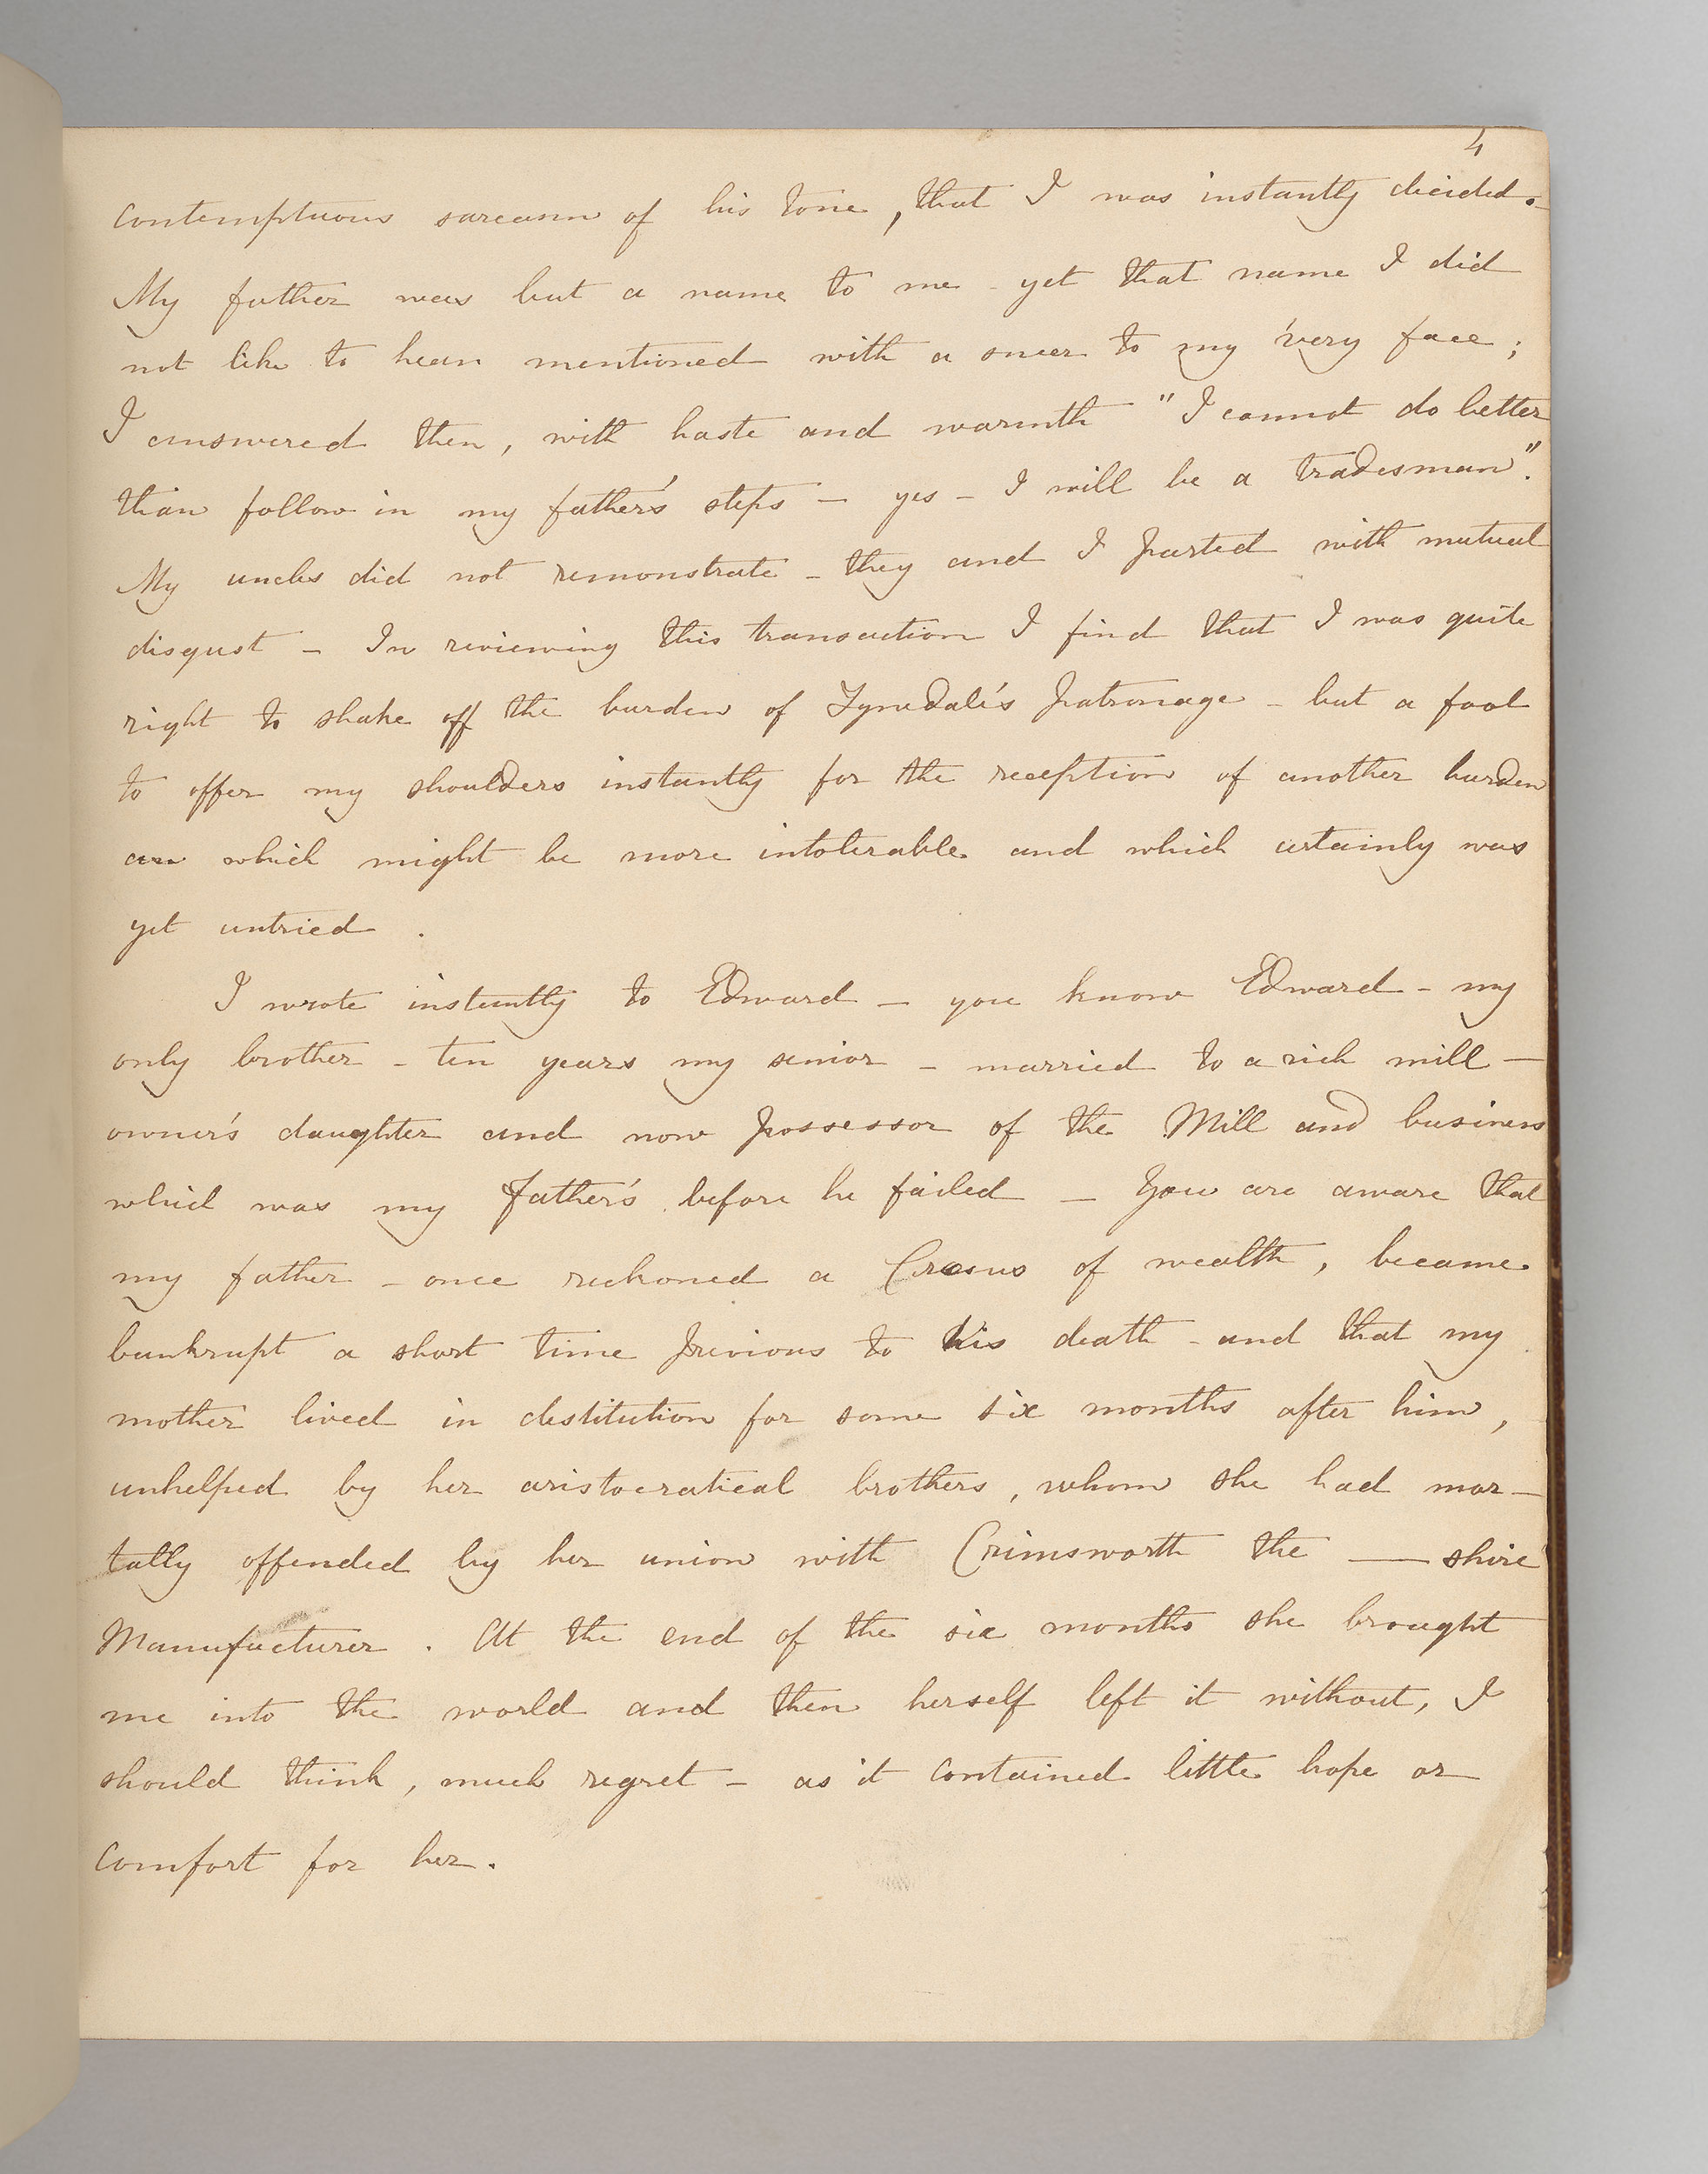 4
contemptuous sarcasm of his tone, that I was instantly decided.
My father was but a name to me - yet that name I did
not like to hear mentioned with a sneer to my very face ;
I answered then, with haste and warmth "I cannot do better
than follow in my father's steps - yes - I will be a tradesman".
My uncles did not remonstrate - they and I parted with mutual
disgust - In reviewing this transaction I find that I was quite
right to shake off the burden of Tynedale's patronage - but a fool
to offer my shoulders instantly for the reception of another burden
which might be more intolerable and which certainly was
yet untried .
I wrote instantly to Edward - you know Edward - my
only brother - ten years my senior - married to a rich mill-
owner's daughter and now possessor of the Mill and business
which was my father's before he failed - You are aware that
my father - once reckoned a Cresus of wealth, became
bankrupt a short time previous to his death - and that my
mother lived in destitution for some six months after him,
unhelped by her aristocratical brothers, whom she had mor-
tally offended by her union with Crimsworth the —— shire
Manufacturer . At the end of the six months she brought
me into the world and then herself left it without, I
should think, much regret - as it contained little hope or
comfort for her.